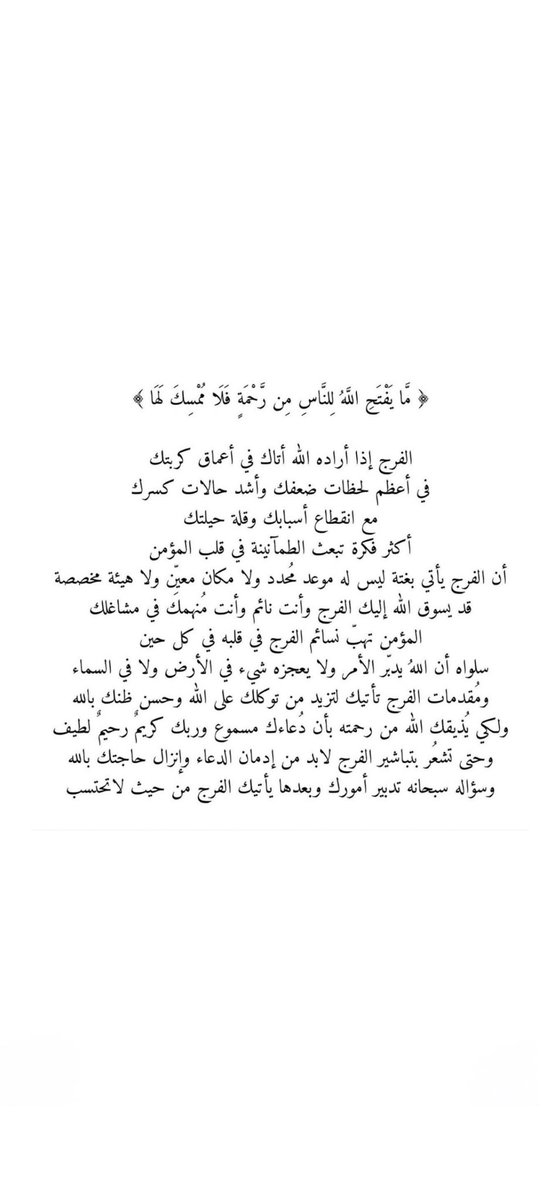 ﴿ مَّا يَفْتَحِ اللَّهُ لِلنَّاسِ مِن رَّحْمَةٍ فَلَا مُمْسِكَ لَهَا ﴾
الفرج إذا أراده الله أتاك في أعماق كربتك
في أعظم لحظات ضعفك وأشد حالات كسرك
مع انقطاع أسبابك وقلة حيلتك
أكثر فكرة تبعث الطمآنينة في قلب المؤمن
أن الفرج يأتي بغتة ليس له موعد مُحدد ولا مكان معيّن ولا هيئة مخصصة
قد يسوق الله إليك الفرج وأنت نائم وأنت مُنهمك في مشاغلك
المؤمن تهبّ نسائم الفرج في قلبه في كل حين
سلواه أن اللهُ يدبّر الأمر ولا يعجزه شيء في الأرض ولا في السماء
ومُقدمات الفرج تأتيك لتزيد من توكلك على الله وحسن ظنك بالله
ولكي يُذيقك الله من رحمته بأن دُعاءك مسموع وربك كريمٌ رحيمٌ لطيف
وحتى تشعُر بتباشير الفرج لابد من إدمان الدعاء وإنزال حاجتك بالله
وسؤاله سبحانه تدبير أمورك وبعدها يأتيك الفرج من حيث لاتحتسب